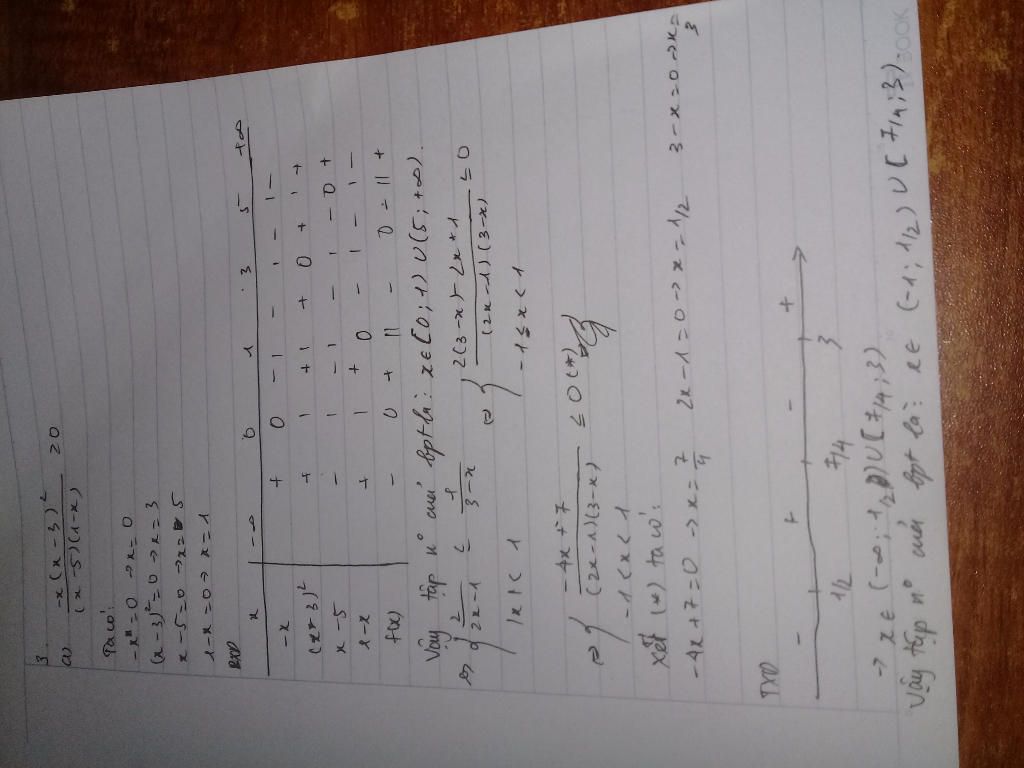 3.
a) -x(x-3)² / (x-5)(1-x) ≥ 0
Ta có:
-x=0 → x=0
(x-3)²=0 → x=3
x-5=0 → x=5
1-x=0 → x=1
BXD
x | -∞ 0 1 3 5 +∞
-x | + 0 - | - | - | -
(x-3)² | + | + | + 0 + | +
x-5 | - | - | - | - 0 +
1-x | + | + 0 - | - | -
f(x) | - 0 + || - 0 - || +
Vậy tập n⁰ của bpt là: x∈[0;1)∪(5;+∞).
b) { 2/(2x-1) ≤ 1/(3-x) ⇔ { 2(3-x)-2x+1 / (2x-1)(3-x) ≤ 0
|x| < 1 -1≤x<1
⇔ { -4x+7 / (2x-1)(3-x) ≤ 0 (*)
-1<x<1
xét (*) ta có:
-4x+7=0 → x=7/4 2x-1=0 → x=1/2 3-x=0 → x=3
TXD
- + - +
1/2 7/4 3
→ x∈(-∞;1/2)∪[7/4;3)
Vậy tập n⁰ của bpt là: x∈(-1;1/2)∪[7/4;3)